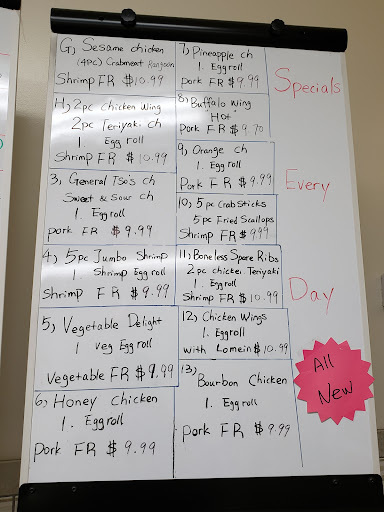 G) Sesame chicken
(4PC) Crabmeat Rangoon
Shrimp FR $10.99
H) 2pc Chicken Wing
2pc Teriyaki ch
1 Egg roll
Shrimp FR $10.99
3, General Tso's ch
Sweet & Sour ch
1 Eggroll
pork FR $9.99
4) 5pc Jumbo Shrimp
1. Shrimp Egg roll
Shrimp FR $9.99
5) Vegetable Delight
1 veg Egg roll
Vegetable FR $9.99
6) Honey Chicken
1. Eggroll
Pork FR $9.99
7) Pineapple ch
1. Eggroll
Pork FR $9.99
8) Buffalo Wing
Hot
Pork FR $9.70
9, Orange ch
1. Egg roll
Pork FR $9.99
10) 5 pc Crab Sticks
5 pc Fried Scallops
Shrimp FR $9.99
11) Boneless Spare Ribs
2pc chicken Teriyaki
1. Egg roll
Shrimp FR $10.99
12) Chicken Wings
1. Eggroll
with Lomein $10.99
13) Bourbon Chicken
1. Egg roll
pork FR $9.99
Specials
Every
Day
All
New